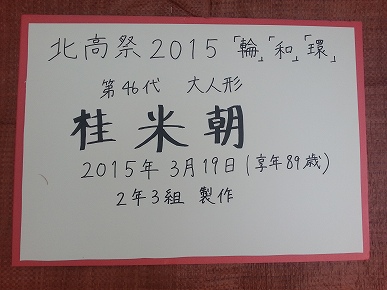 北高祭2015「輪」「和」「環」
第46代 大人形
桂米朝
2015年3月19日(享年89歳)
2年3組 製作